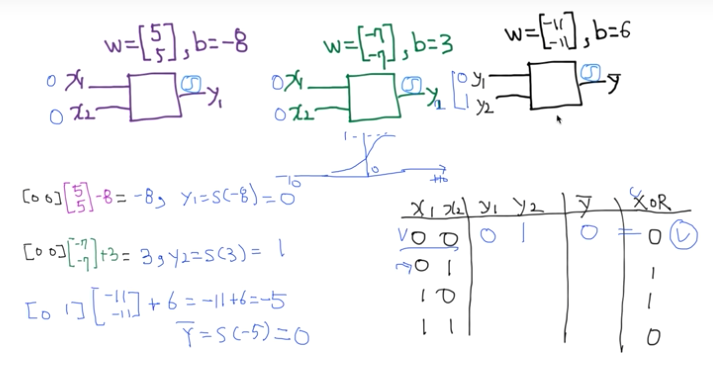 w=[5 5], b=-8
w=[-7 -7], b=3
w=[-11 -11], b=6
0 x1
0 x2
S y1
0 x1
0 x2
S y2
0 y1
1 y2
S ȳ
1
-10 0 +10
[0 0][5 5]-8=-8, y1=S(-8)=0
[0 0][-7 -7]+3=3, y2=S(3)=1
[0 1][-11 -11]+6=-11+6=-5
Ȳ=S(-5)=0
x1 x2 y1 y2 ȳ XOR
0 0 0 1 0 = 0
0 1 1
1 0 1
1 1 0